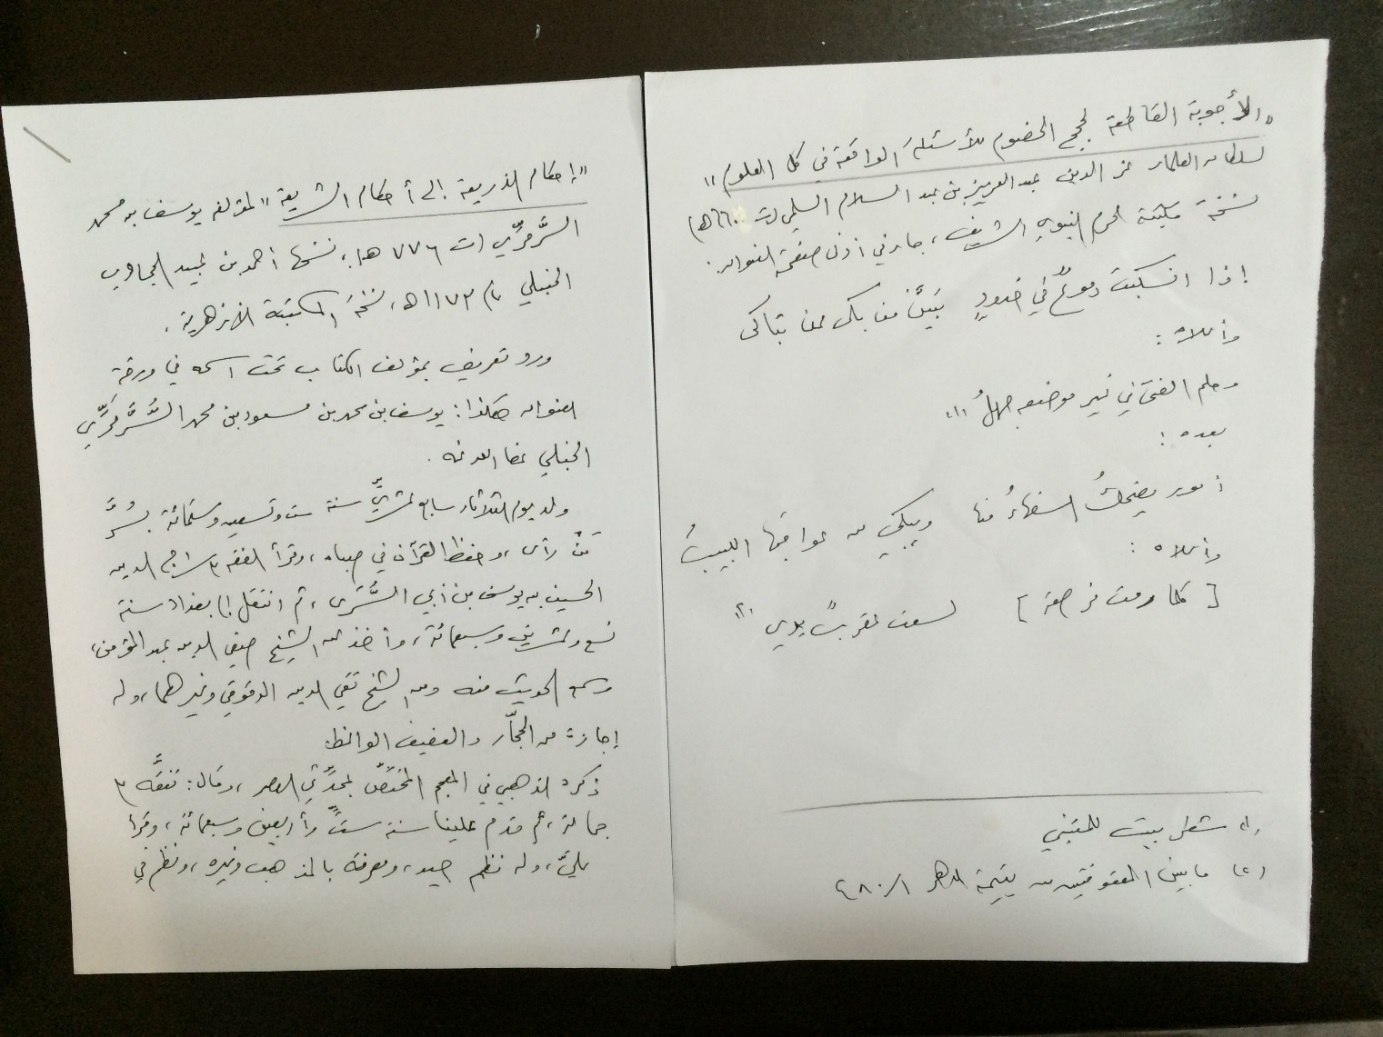 «الأجوبة القاطعة لحجج الخصوم للأسئلة الواقعة في كل العلوم»
لسلطان العلماء عز الدين عبد العزيز بن عبد السلام السلمي (ت ٦٦٠ هـ)
نسخة مكتبة الحرم النبوي الشريف، جاء في أول صفحة العنوان:
إذا انسكبت دموعٌ في خدودٍ تبيَّن من بكى ممن تباكى
وأعلاه:
وحلم الفتى في غير موضعه جهلُ (١)
بعده:
أمور يضحكُ السفهاءُ منها ويبكي من عواقبها اللبيبُ
وأعلاه:
[كلما رمت فرصة] لسعت عقربٌ يدي (٢)
(١) شطر بيت للمتنبي
(٢) ما بين المعقوفتين من يتيمة الدهر
«إحكام الذريعة إلى أحكام الشريعة» لمؤلفه يوسف بن محمد
السُّرَّمرِّي (ت ٧٧٦ هـ)، نسخها أحمد بن
الحنبلي عام ١١٧٣هـ، نسخة المكتبة الأزهرية.
ورد تعريف بمؤلف الكتاب تحت اسمه في ورقة
العنوان هكذا: يوسف بن محمد بن مسعود بن محمد السُّرَّمَرِّي
الحنبلي عفا الله عنه.
ولد يوم الثلاثاء سابع عشري سنة ست وتسعين وستمائة بسُرَّ
مَنْ رأى، وحفظ القرآن في صباه، وقرأ الفقه ع سراج الدين
الحسين بن يوسف بن أبي السَّري، ثم انتقل إلى بغداد سنة
تسع وعشرين وسبعمائة، وأخذ عن الشيخ صفي الدين عبد المؤمن،
وسمع الحديث منه ومن الشيخ تقي الدين الدقوقي وغيرهما، وله
إجازة من الحجَّار والعفيف الواعظ.
ذكره الذهبي في المعجم المختصّ بمحدِّثي العصر، وقال: تفقَّه ع
جماعة، ثم قدم علينا سنة ستٍّ وأربعين وسبعمائة، وقرأ
عليَّ، وله نظم جيد، ومعرفة بالمذهب وغيره، ونظم في